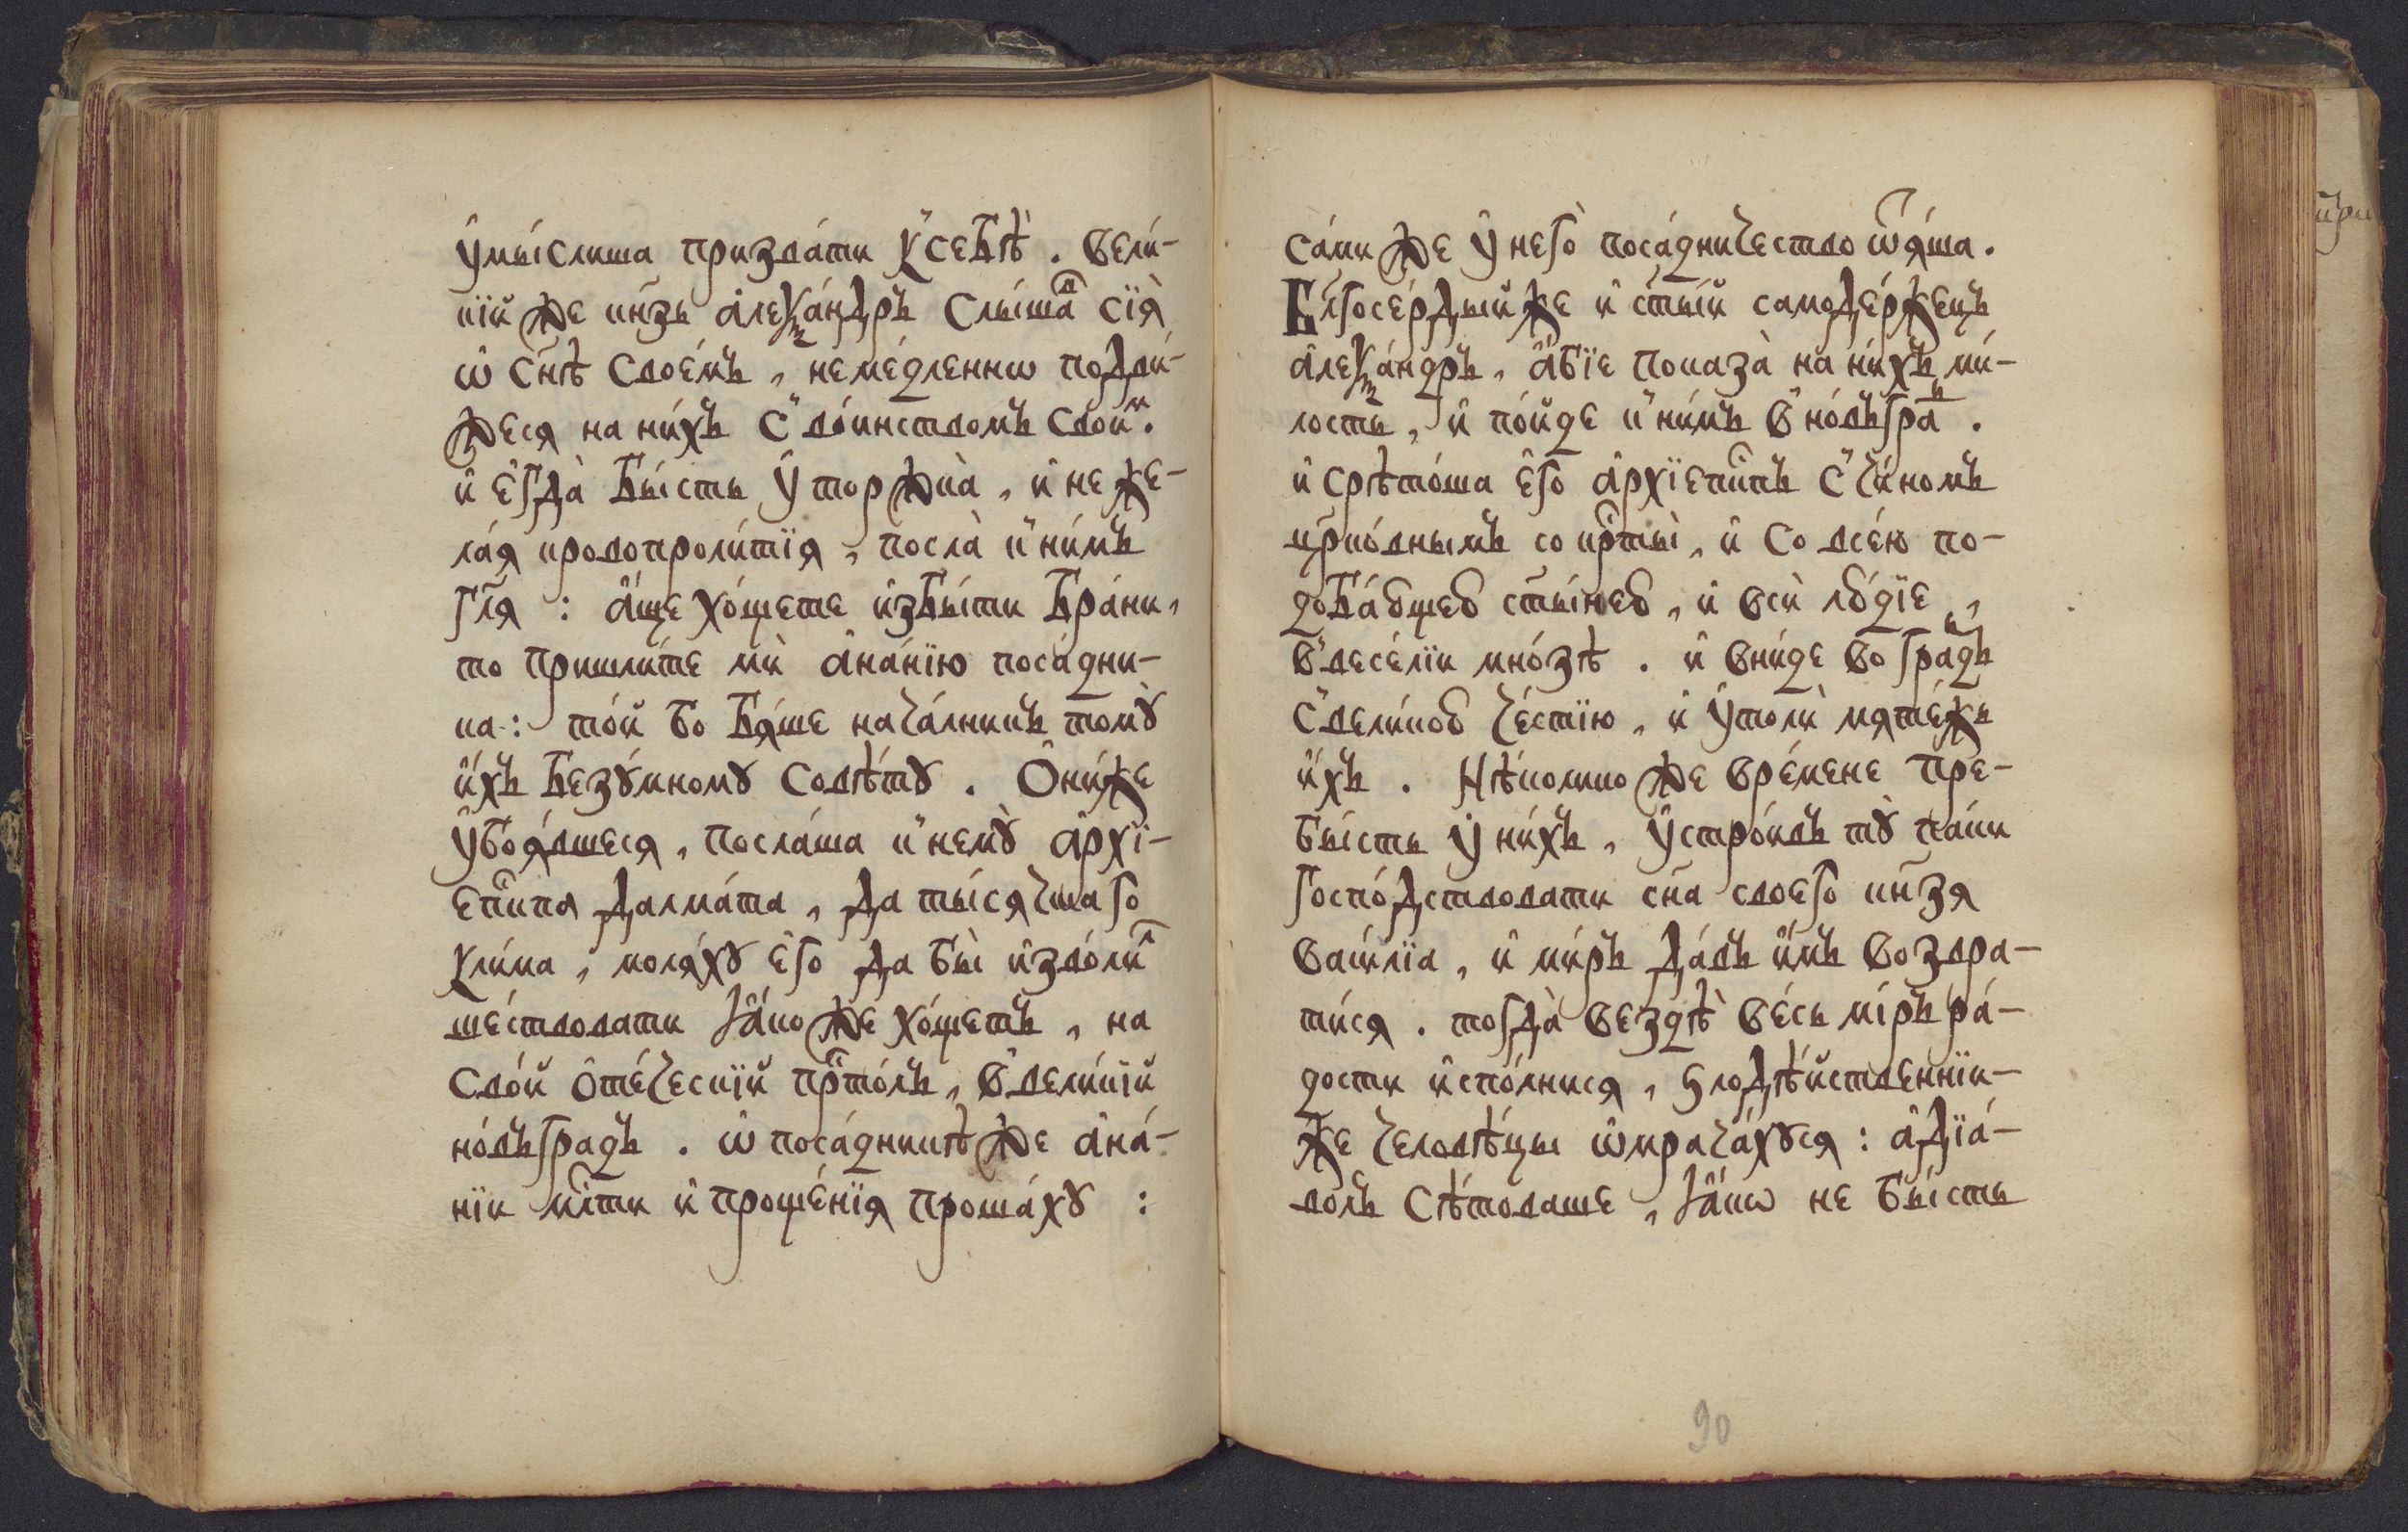 ᲂу҆мы́слиша призва́ти к̾ себѣ̀ . Вели́-
кїй же кн҃зь а҆леѯа́ндръ слы́шаⷡ сїѧ̀
ѡ҆ сн҃ѣ свое́мъ , неме́дленнѡ подви́-
жесѧ на ни́хъ с̾ во́инствомъ свои́ⷨ .
и҆ є҆гда̀ бы́сть ᲂу҆ торжка̀ , и҆ не же-
ла́ѧ кровопроли́тїѧ , посла̀ к̾ ни́мъ
гл҃ѧ : а҆́ще хо́щете и҆збы́ти бра́ни ,
то пришли́те мѝ а҆на́нїю поса́дни-
ка : то́й бо бѧ́ше нача́лникъ томꙋ̀
и҆́хъ безꙋ́мномꙋ совѣ́тꙋ . Ѻ҆ни́же
ᲂу҆боѧ́вшесѧ , посла́ша к̾ немꙋ̀ а҆рхї-
епⷭ҇кпа далма́та , да ты́сѧчкаго
кли́ма , молѧ́хꙋ є҆го̀ да бы̀ и҆зво́лиⷧ
ше́ствовати ꙗ҆́коже хо́щетъ , на
сво́й ѻ҆те́ческїй прⷭ҇то́лъ , в̾ вели́кїй
но́въградъ . ѡ҆ поса́дникѣ же а҆на́-
нїи мл҃ти и҆ проще́нїѧ проша́хꙋ :
са́ми же ᲂу҆ него̀ поса́дничество ѿѧ́ша .
Бл҃госе́рдый же и҆ ст҃ы́й самоде́ржецъ
а҆леѯа́ндръ , а҆́бїе показа̀ на ни́хъ ми́-
лость , и҆ по́йде к̾ ни́мъ в̾ но́въграⷣ .
и҆ срѣто́ша є҆го̀ а҆рхїепⷭ҇кпъ с̾ чи́номъ
цр҃ко́внымъ со крⷭ҇ты̀ , и҆ со все́ю по-
доба́ющею ст҃ы́нею , и҆ всѝ лю́дїе ,
в̾ весе́лїи мно́зѣ . и҆ вни́де во гра́дъ
с̾ вели́кою че́стїю , и҆ ᲂу҆толѝ мѧте́жъ
и҆́хъ . Нѣ́колико же вре́мене пре-
бы́сть ᲂу҆ ни́хъ , ᲂу҆стро́ивъ тꙋ̀ па́ки
госпо́дствовати сн҃а своего̀ кн҃зѧ
васи́лїа , и҆ ми́ръ да́въ и҆̀мъ возвра-
ти́сѧ . тогда̀ вездѣ̀ ве́сь мі́ръ ра́-
дости и҆спо́лнисѧ , ѕлодѣ́йственнїи-
же человѣ́цы ѡ҆мрача́хꙋсѧ : а҆ дїа́-
волъ сѣ́товаше , ꙗ҆́кѡ не бы́сть
90